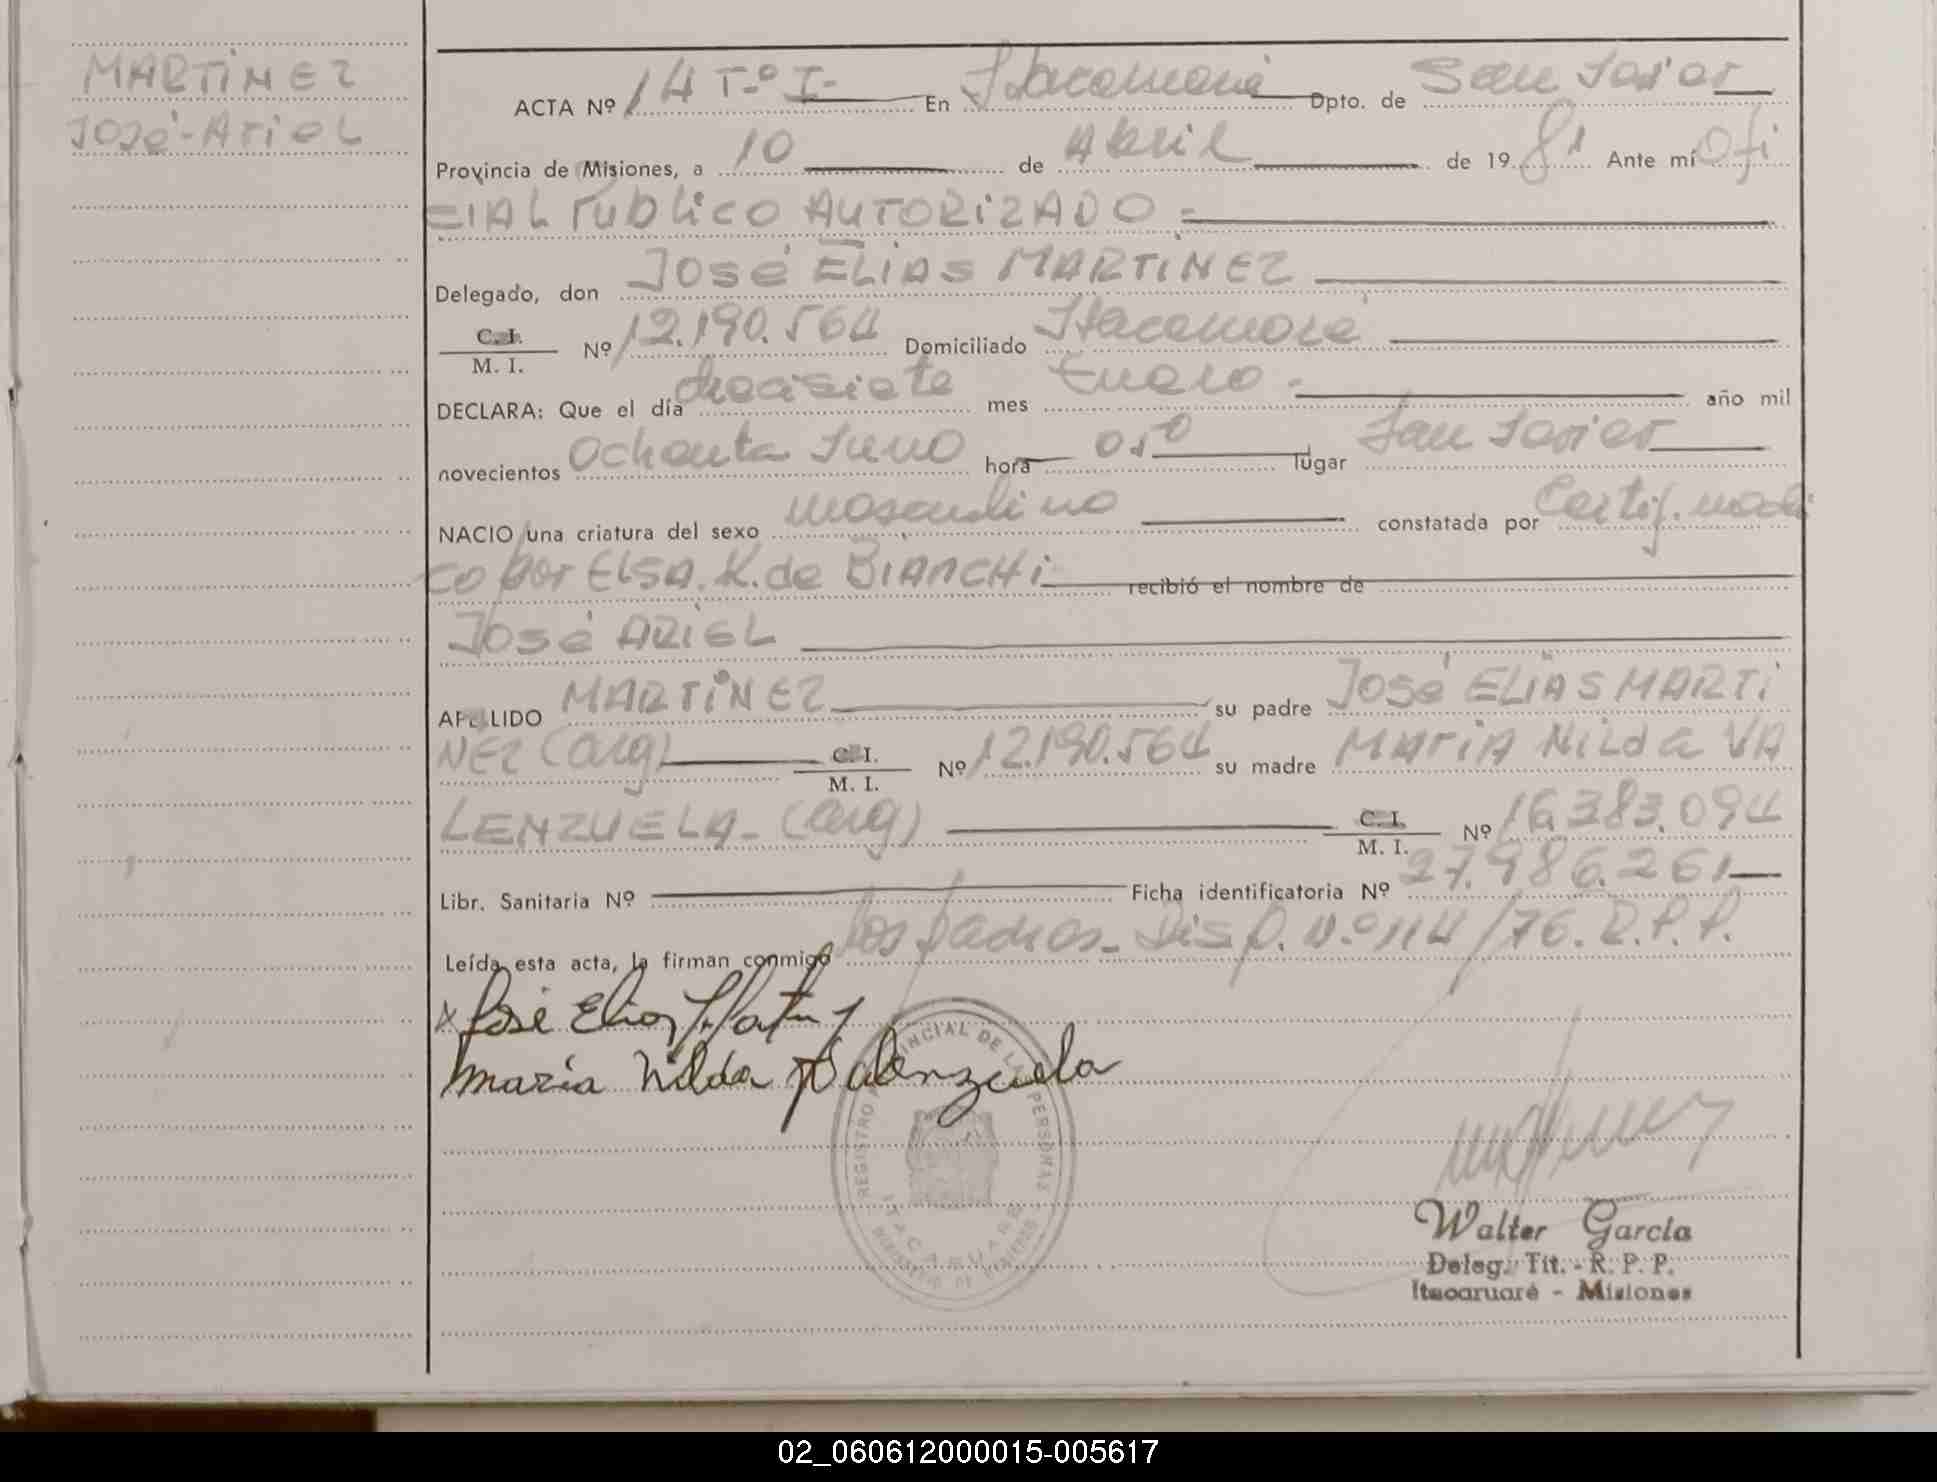 MARTINEZ
José-Ariel
ACTA Nº 14 T.º I- En Itacaruaré Dpto. de San Javier
Provincia de Misiones, a 10 de Abril de 1981 Ante mí Ofi
CIAL PUBLICO AUTORIZADO -
Delegado, don José ELIAS MARTINEZ
C. I.
M. I. Nº 12.190.564 Domiciliado Itacaruaré
DECLARA: Que el día diecisiete mes Enero - año mil
novecientos Ochenta Iuno hora 05º lugar San Javier
NACIO una criatura del sexo masculino constatada por Certif. medi
co por ELSA. K. de BIANCHI recibió el nombre de
José ARIEL
APELLIDO MARTINEZ su padre José ELIAS MARTI
NEZ (arg) C. I. M. I. Nº 12.190.564 su madre MARIA NILda VA
LENZUELA - (arg) C. I. M. I. Nº 16.383.094
Libr. Sanitaria Nº Ficha identificatoria Nº 27.986.261
Leída esta acta, la firman conmigo los padres - Disp. N.º 114/76. R.P.P.
José Elias Martinez
maria Nilda Valenzuela
REGISTRO PROVINCIAL DE LAS PERSONAS
ITACARUARE
Walter García
Deleg. Tit. - R. P. P.
Itacaruaré - Misiones
02_060612000015-005617